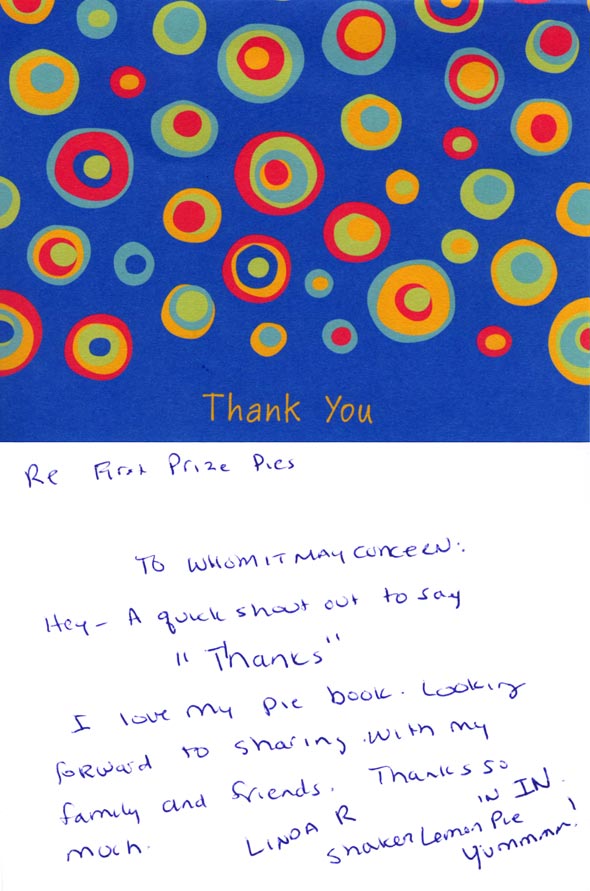 Thank You
Re First Prize Pies
To whom it may concern:
Hey - A quick shout out to say
"Thanks"
I love my pie book. Looking
forward to sharing with my
family and friends. Thanks so
much.
Linda R
in IN.
Shaker Lemon Pie
Yummmm!